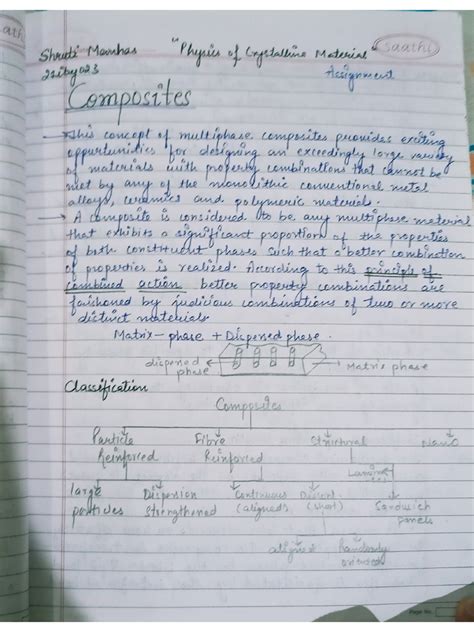 Shruti Manhas "Physics of Crystalline Material"
Saathi
Assignment
Composites
→ This concept of multiphase composites provides exciting
oppurtunities for designing an exceedingly large variety
of materials with property combinations that cannot be
met by any of the monolithic conventional metal
alloys, ceramics and polymeric materials.
→ A composite is considered to be any multiphase material
that exhibits a significant proportion of the properties
of both constituent phases such that a better combination
of properties is realized. According to this principle of
combined action better property combinations are
faishoned by judicious combinations of two or more
distinct materials.
Matrix-phase + Dispersed phase.
dispersed phase
Matrix phase
Classification
Composites
Particle Reinforced
Fibre Reinforced
Structural
Nano
large particles
Dispersion Strengthened
Continuous (aligned)
(short)
Sandwich panels
aligned
Randomly oriented
Page No.